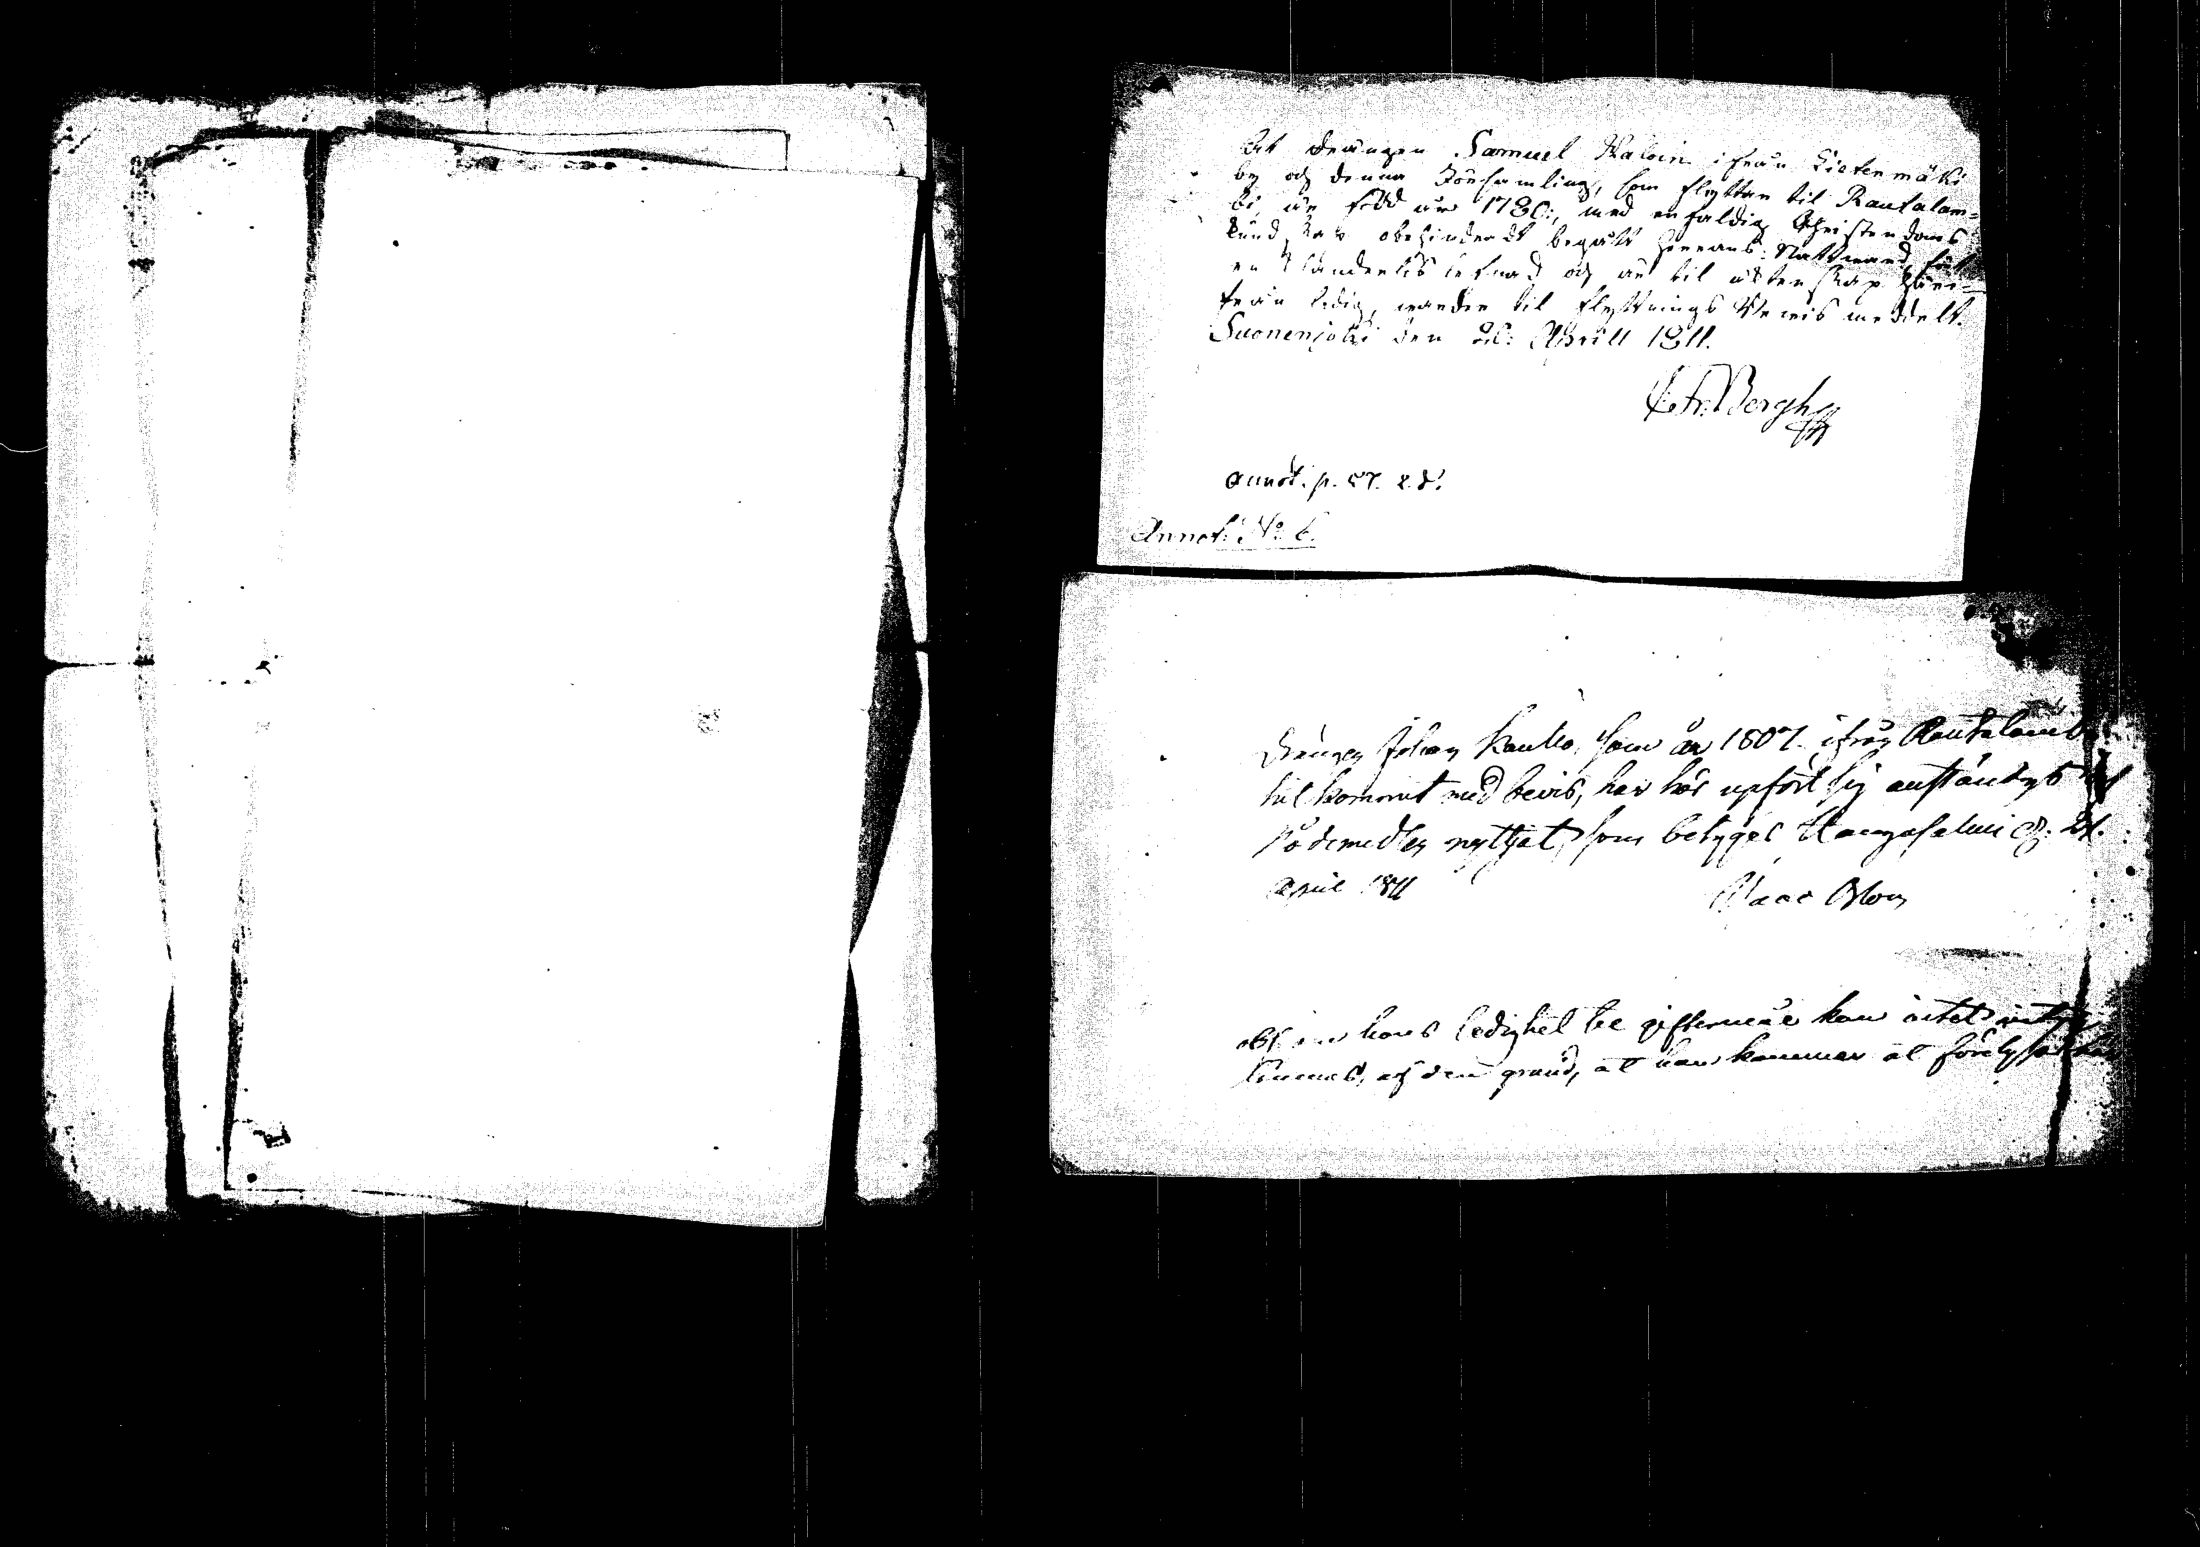 At drängen Samuel Halvin ifrån Lietenmäki
by och denna Församling, som flyttar til Rautalam-
bi, är född år 1780, med enfaldig Christendoms
kundskap obehindradt begått Herrans Nattward, fört
en oklanderlig lefnad och är til äktenskap häri-
från ledig, warder til flyttnings bewis meddelt.
Suonenjoki den 26: Aprill 1811.
Bergh
Annot. p. 57.
Annot: No: 6.
Drängen Johan Kauko, som år 1807 ifrån Rautalambi
til kommit med bewis, har här upfört sig anständigt och
nådemedlen nyttjat, som betygas Kangasalmi d. 21.
April 1811
Isaac
om hans ledighet til giftermål kan intet
af den grund, at han kommer at